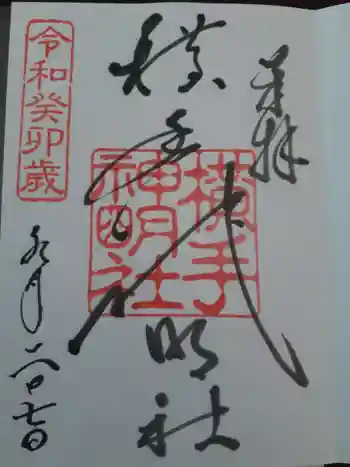 奉拝
横手神明社
横手
神明社
令和癸卯歳
九月 七日